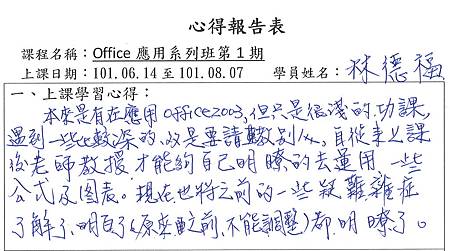 心得報告表
課程名稱：Office 應用系列班第 1 期
上課日期：101.06.14 至 101.08.07 學員姓名：林德福
一、上課學習心得：
本來是有在應用office2003，但只是很淺的功課，
遇到一些比較深的，必是要請教別人，自從來上課
後老師教授才能夠自己明瞭的去運用一些
公式及圖表。現在也將之前的一些疑難雜症
了解了、明白了(原來之前不能調整)都明瞭了。